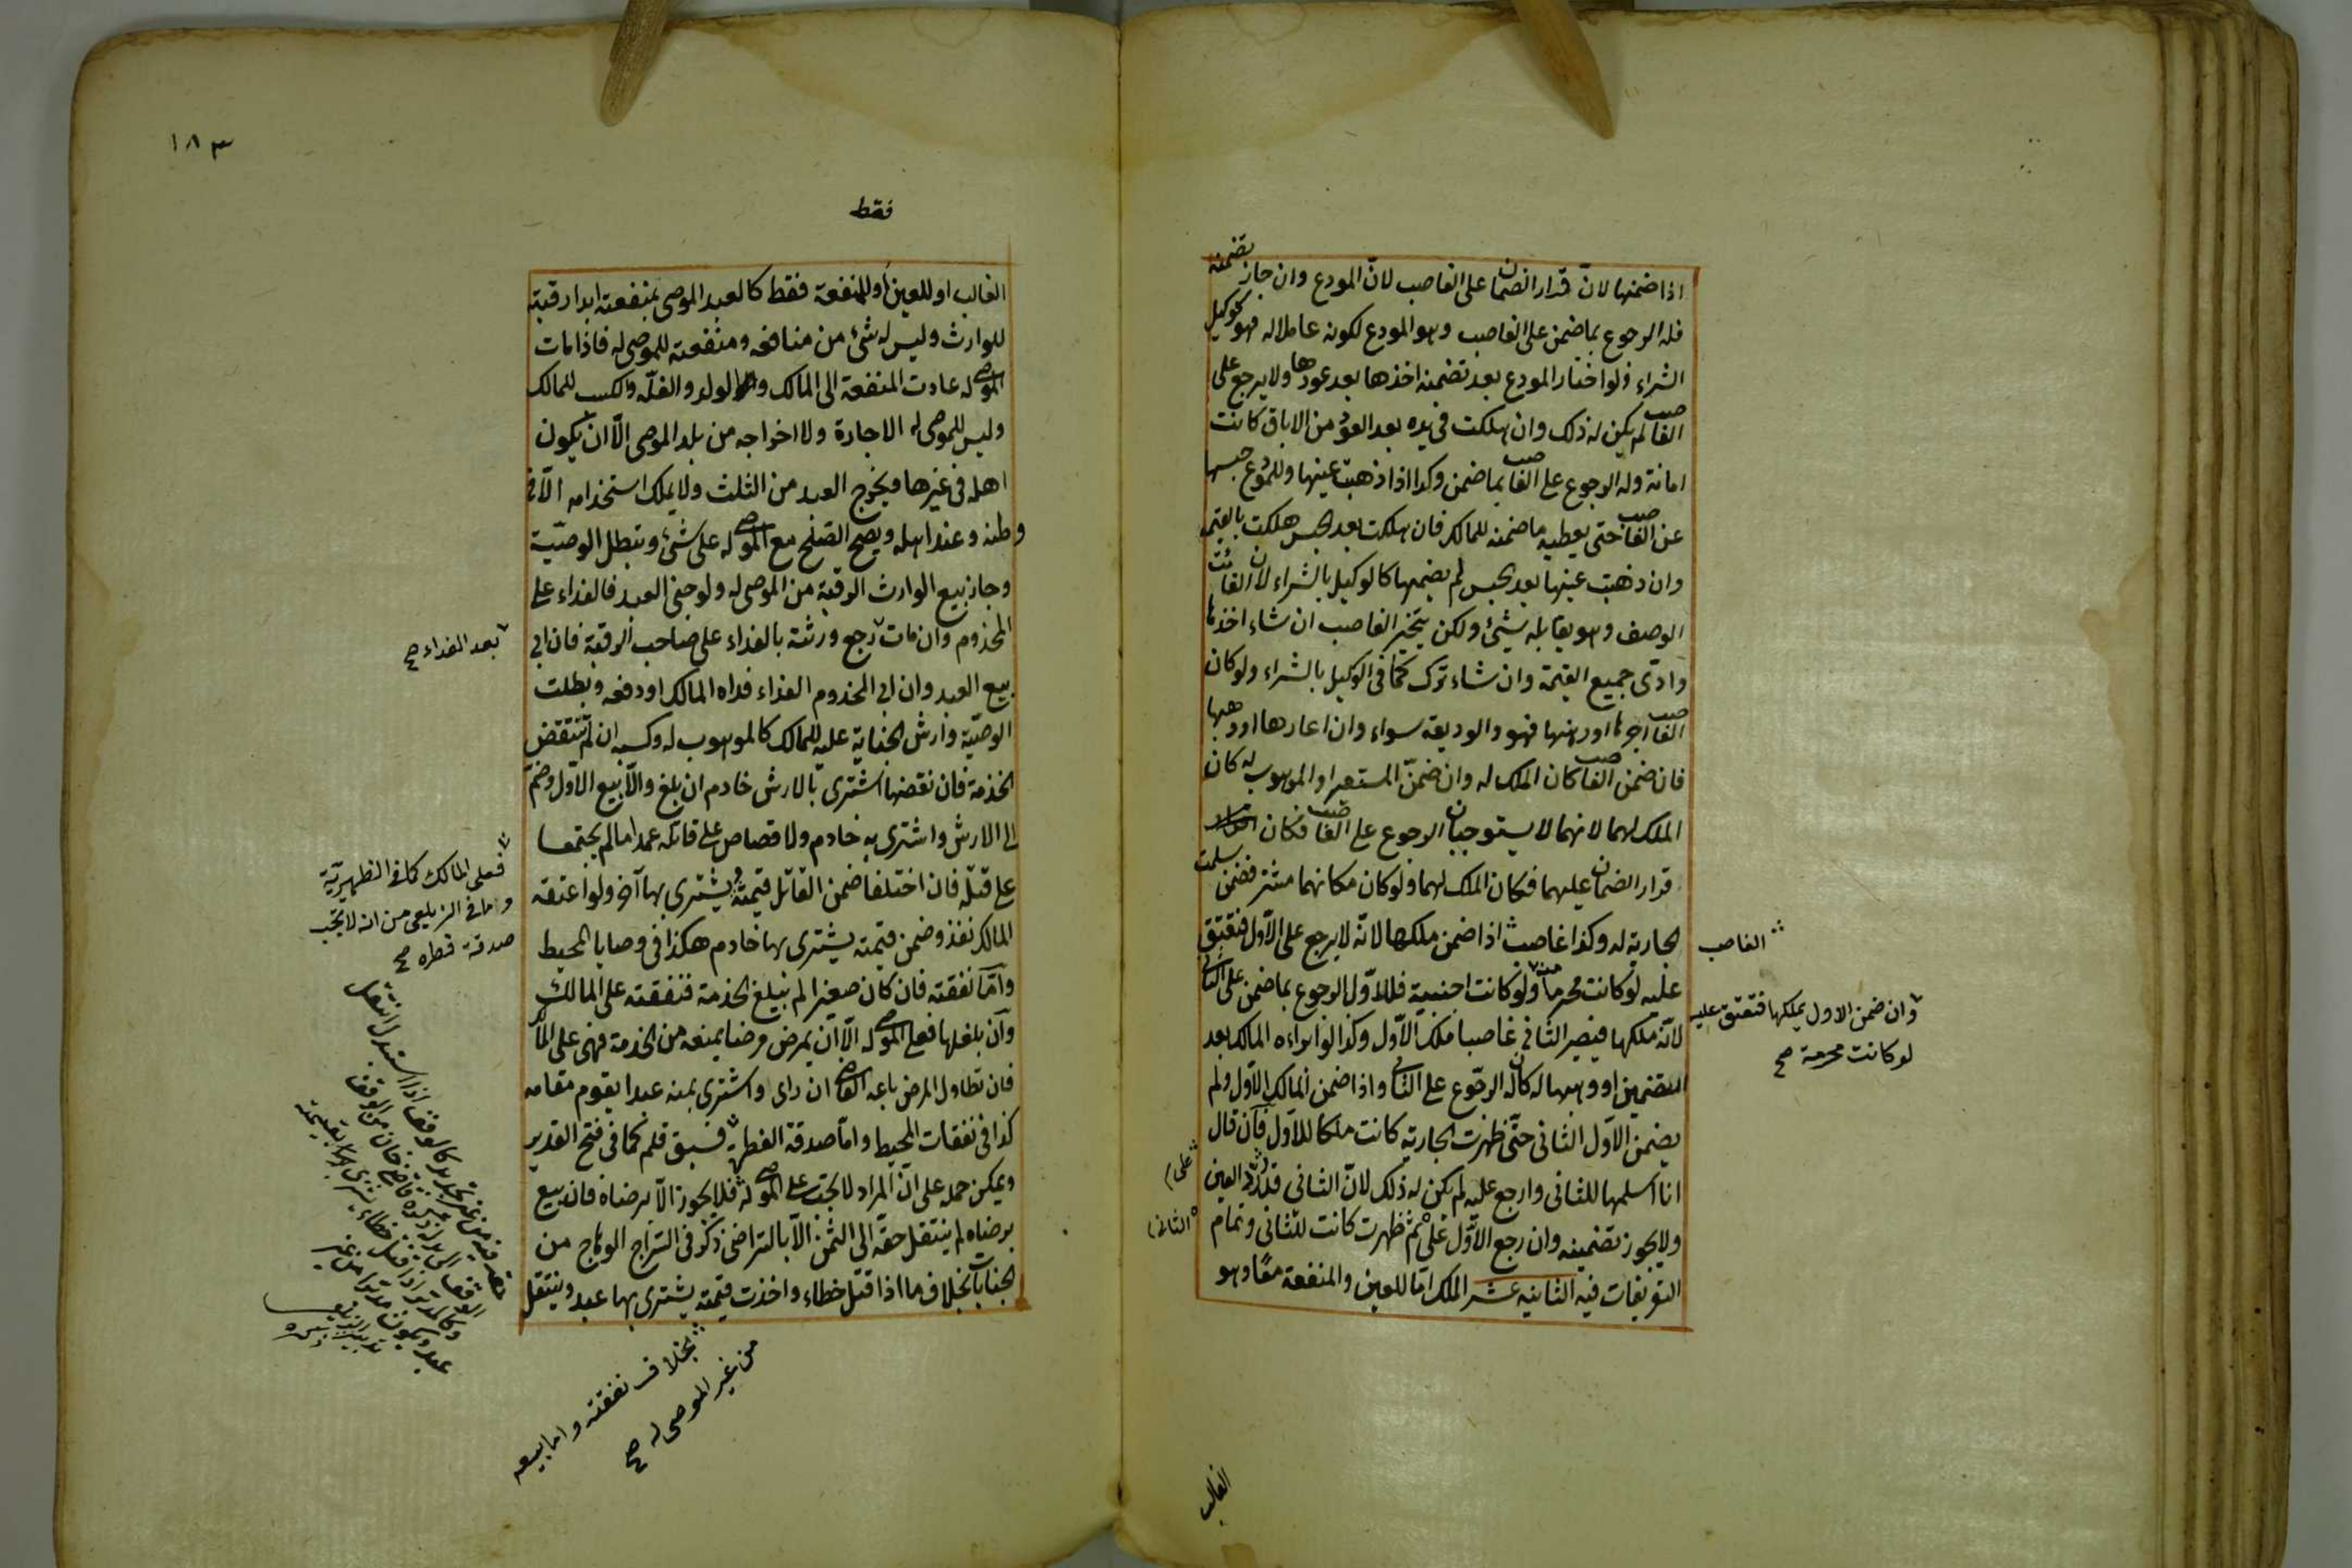 اذا ضمنها لانّ قرار الضمان على الغاصب لانّ المودع وان جاز تضمينه
فله الرجوع بما ضمن على الغاصب وهو المودع لكونه عاملا له فهو كوكيل
الشراء ولو اختار المودع بعد تضمينه اخذها بعد عودها ولا يرجع على
الغاصب لم يكن له ذلك وان هلكت فى يده بعد العود من الاباق كانت
امانة وله الرجوع على الغاصب بما ضمن وكذا اذا ذهبت عينها وللمودع حبسها
عن الغاصب حتى يعطيه ما ضمنه للمالك فان هلكت بعد الحبس هلكت بالقيمة
وان ذهبت عينها بعد الحبس لم يضمنها كالوكيل بالشراء لان الفائت
الوصف وهو يقابله شئ ولكن يتخير الغاصب ان شاء اخذها
وادّى جميع القيمة وان شاء ترك كما فى الوكيل بالشراء ولو كان
الغاصب اجرها او رهنها فهو والوديعة سواء وان اعارها او وهبها
فان ضمن الغاصب كان الملك له وان ضمن المستعير او الموهوب له كان
الملك لهما لانهما لا يستوجبان الرجوع على الغاصب فكان
قرار الضمان عليهما فكان الملك لهما ولو كان مكانهما مشتر فضمن سلمت
الجارية له وكذا غاصب اذا ضمن ملكها لانّه لا يرجع على الاوّل فتعتق
عليه لو كانت محرما منه ولو كانت اجنبية فللاوّل الرجوع بما ضمن على الثانى
لانّه ملكها فيصير الثانى غاصبا ملك الاوّل وكذا لو ابراءه المالك بعد
التضمين او وهبها له كان له الرجوع على الثانى واذا ضمن المالك الاوّل ولم
يضمن الاوّل الثانى حتّى ظهرت الجارية كانت ملكا للاوّل فان قال
انا اسلمها للثانى وارجع عليه لم يكن له ذلك لانّ الثانى قدر ردّ العين
ولا يجوز تضمينه وان رجع الاوّل على ثم ظهرت كانت للثانى وتمام
التفريعات فيه الثانية عشر الملك امّا للعين والمنفعة معًا وهو
الغاصب
وان ضمن الاول يملكها فتعتق عليه
لو كانت محرمة صح
على
الثانى
الغالب
١٨٣
فقط
الغالب او للعين او للمنفعة فقط كالعبد الموصى بمنفعته ابدا رقبته
للوارث وليس له شئ من منافعه ومنفعته للموصى له فاذا مات
الموصى له عادت المنفعة الى المالك والولد والغلّة والكسب للمالك
وليس للموصى له الاجارة ولا اخراجه من بلد الموصى الّا ان يكون
اهله فى غيرها ويخرج العبد من الثلث ولا يملك استخدامه الّا فى
وطنه وعند اهله ويصح الصلح مع الموصى له على شئ وتبطل الوصيّة
وجاز بيع الوارث الرقبة من الموصى له ولو جنى العبد فالفداء على
المخدوم وان مات رجع ورثته بالفداء على صاحب الرقبة فان ابى
بيع العبد وان ابى المخدوم الفداء فداه المالك او دفعه وبطلت
الوصيّة وارش الجناية عليه للمالك كالموهوب له وكسبه ان لم تنتقض
الخدمة فان نقضها اشترى بالارش خادم ان بلغ والّا بيع الاوّل وضمّ
الى الارش واشترى به خادم ولا قصاص على قاتله عمدا ما لم يجتمعا
على قتله فان اختلفا ضمن القاتل قيمته ويشترى بها آخر ولو اعتقه
المالك نفذ وضمن قيمته يشترى بها خادم هكذا فى وصايا المحيط
وامّا نفقته فان كان صغيرا لم يبلغ الخدمة فنفقته على المالك
وان بلغها فعلى الموصى له الّا ان يمرض مرضا يمنعه من الخدمة فهى على المالك
فان تطاول المرض باعه القاضى ان راى واشترى بثمنه عبدا يقوم مقامه
كذا فى نفقات المحيط وامّا صدقة الفطر فسبق قلم كما فى فتح القدير
ويمكن حمله على انّ المراد لا تجب على الموصى له فلا يجوز الّا برضاه فان بيع
برضاه لم ينتقل حقّه الى الثمن الّا بالتراضى ذكره فى السّراج الوهّاج من
الجنايات بخلاف ما اذا قتل خطاء واخذت قيمته يشترى بها عبد وينتقل
بعد الفداء صح
فعلى المالك كما فى الظهيريّة
واما فى الزيلعى من انه لا تجب
صدقة فطره صح
بخلاف نفقته واما بيعه
من غير الموصى له صح